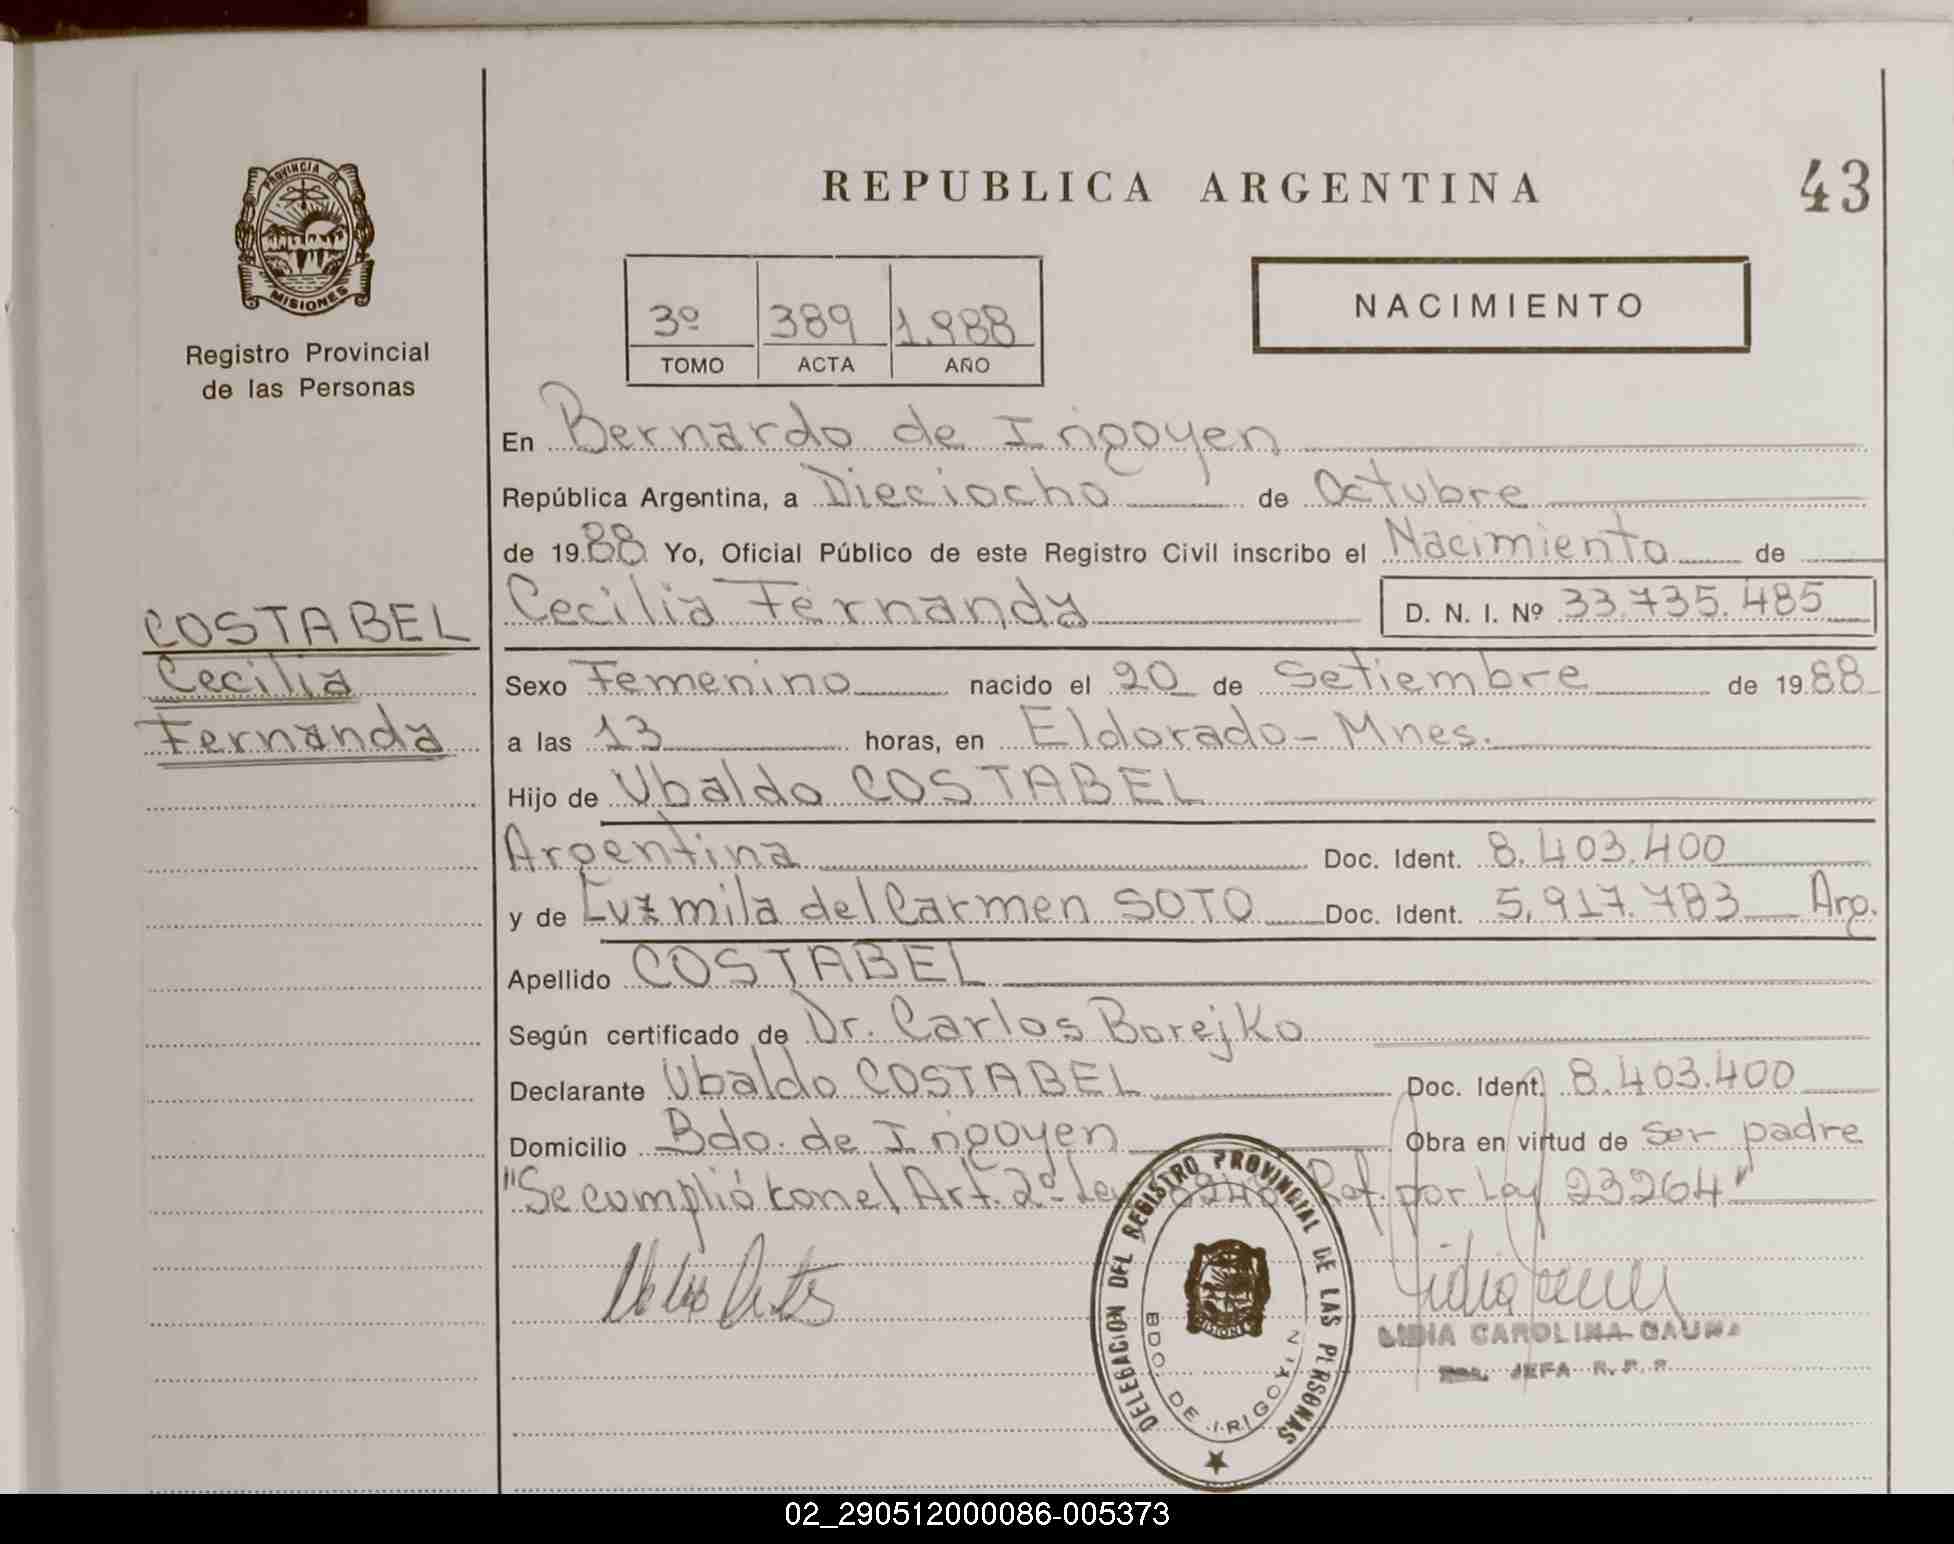 PROVINCIA DE
MISIONES
Registro Provincial
de las Personas
COSTABEL
Cecilia
Fernanda
REPUBLICA ARGENTINA
43
3º 389 1.988
TOMO ACTA AÑO
NACIMIENTO
En Bernardo de Irigoyen
República Argentina, a Dieciocho de Octubre
de 1988 Yo, Oficial Público de este Registro Civil inscribo el Nacimiento de
Cecilia Fernanda D. N. I. Nº 33.735.485
Sexo Femenino nacido el 20 de Setiembre de 1988
a las 13 horas, en Eldorado - Mnes.
Hijo de Ubaldo COSTABEL
Argentina Doc. Ident. 8.403.400
y de Luzmila del Carmen SOTO Doc. Ident. 5.917.783 Arg.
Apellido COSTABEL
Según certificado de Dr. Carlos Borejko
Declarante Ubaldo COSTABEL Doc. Ident. 8.403.400
Domicilio Bdo. de Irigoyen Obra en virtud de ser padre
"Se cumplió con el Art. 2º Ley Ref. por Ley 23264"
DELEGACION DEL REGISTRO PROVINCIAL DE LAS PERSONAS
MISIONES
BDO. DE IRIGOYEN
LIDIA CAROLINA GAUNA
JEFA R. P. P.
02_290512000086-005373